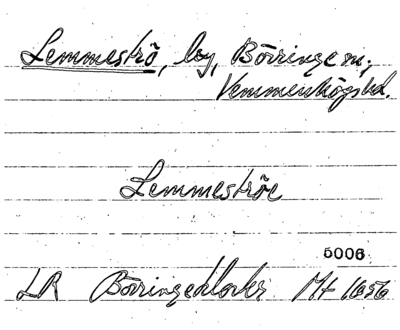 Lemmeströ, by, Börringe sn,
Vemmenhögs hd.
Lemmeströe
5006
LR Börringekloster Mt 1656